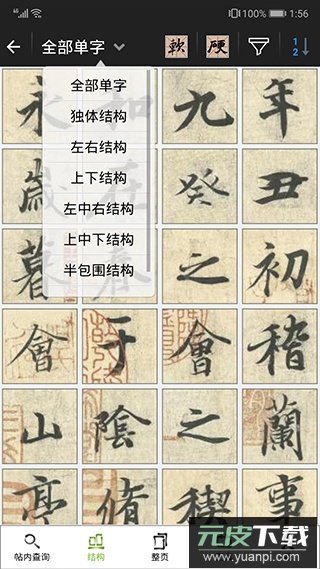 4G 100% 1:56
全部单字 軟 硬 1 2
全部单字
独体结构
左右结构
上下结构
左中右结构
上中下结构
半包围结构
永 和 九 年
歲 在 癸 丑
暮 春 之 初
會 于 會 稽
山 陰 之 蘭
亭 脩 稧 事
帖内查询 结构 整页
元皮下载
www.yuanpi.com